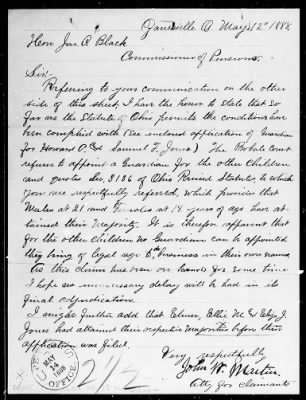 Zanesville O. May 12" 1888
Hon Jno. C Black
Commissioner of Pensions.
Sir:-
Referring to your communication on the other
side of this sheet, I have the honor to state that so
far as the Statutes of Ohio permits the conditions have
been complied with (See enclosed application of Guardian
for Howard O. & Samuel F. Jones) The Probate Court
refuses to appoint a Guardian for the other Children
and quotes Sec 3136 of Ohio Revised Statutes, to which
you are respectfully referred, which provides that
Males at 21 and Females at 18 years of age have at-
tained their Majority. It is therefore apparent that
for the other children no Guardian can be appointed
they being of legal age & business in their own names
As this claim has been on hands for some time
I hope no unnecessary delay will be had in its
final adjudication.
I might further add that Elmer, Ellie M. & Eliza J.
Jones had attained their respective majorities before their
application was filed.
Very respectfully
John W. Martin
Atty for claimants
OFFICE
MAY
14
1888